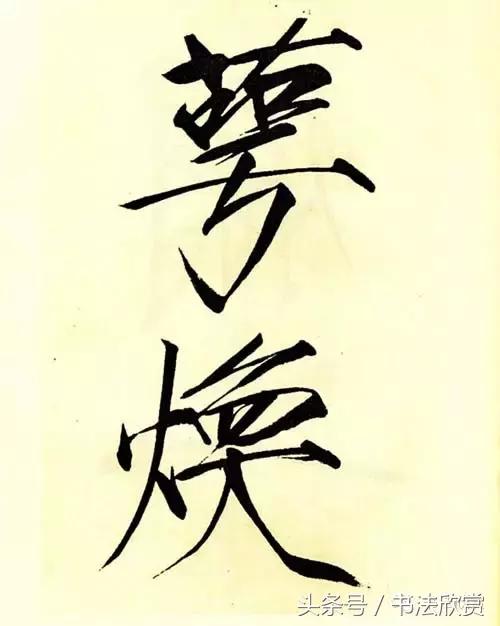 萼
煥
头条号 / 书法欣赏